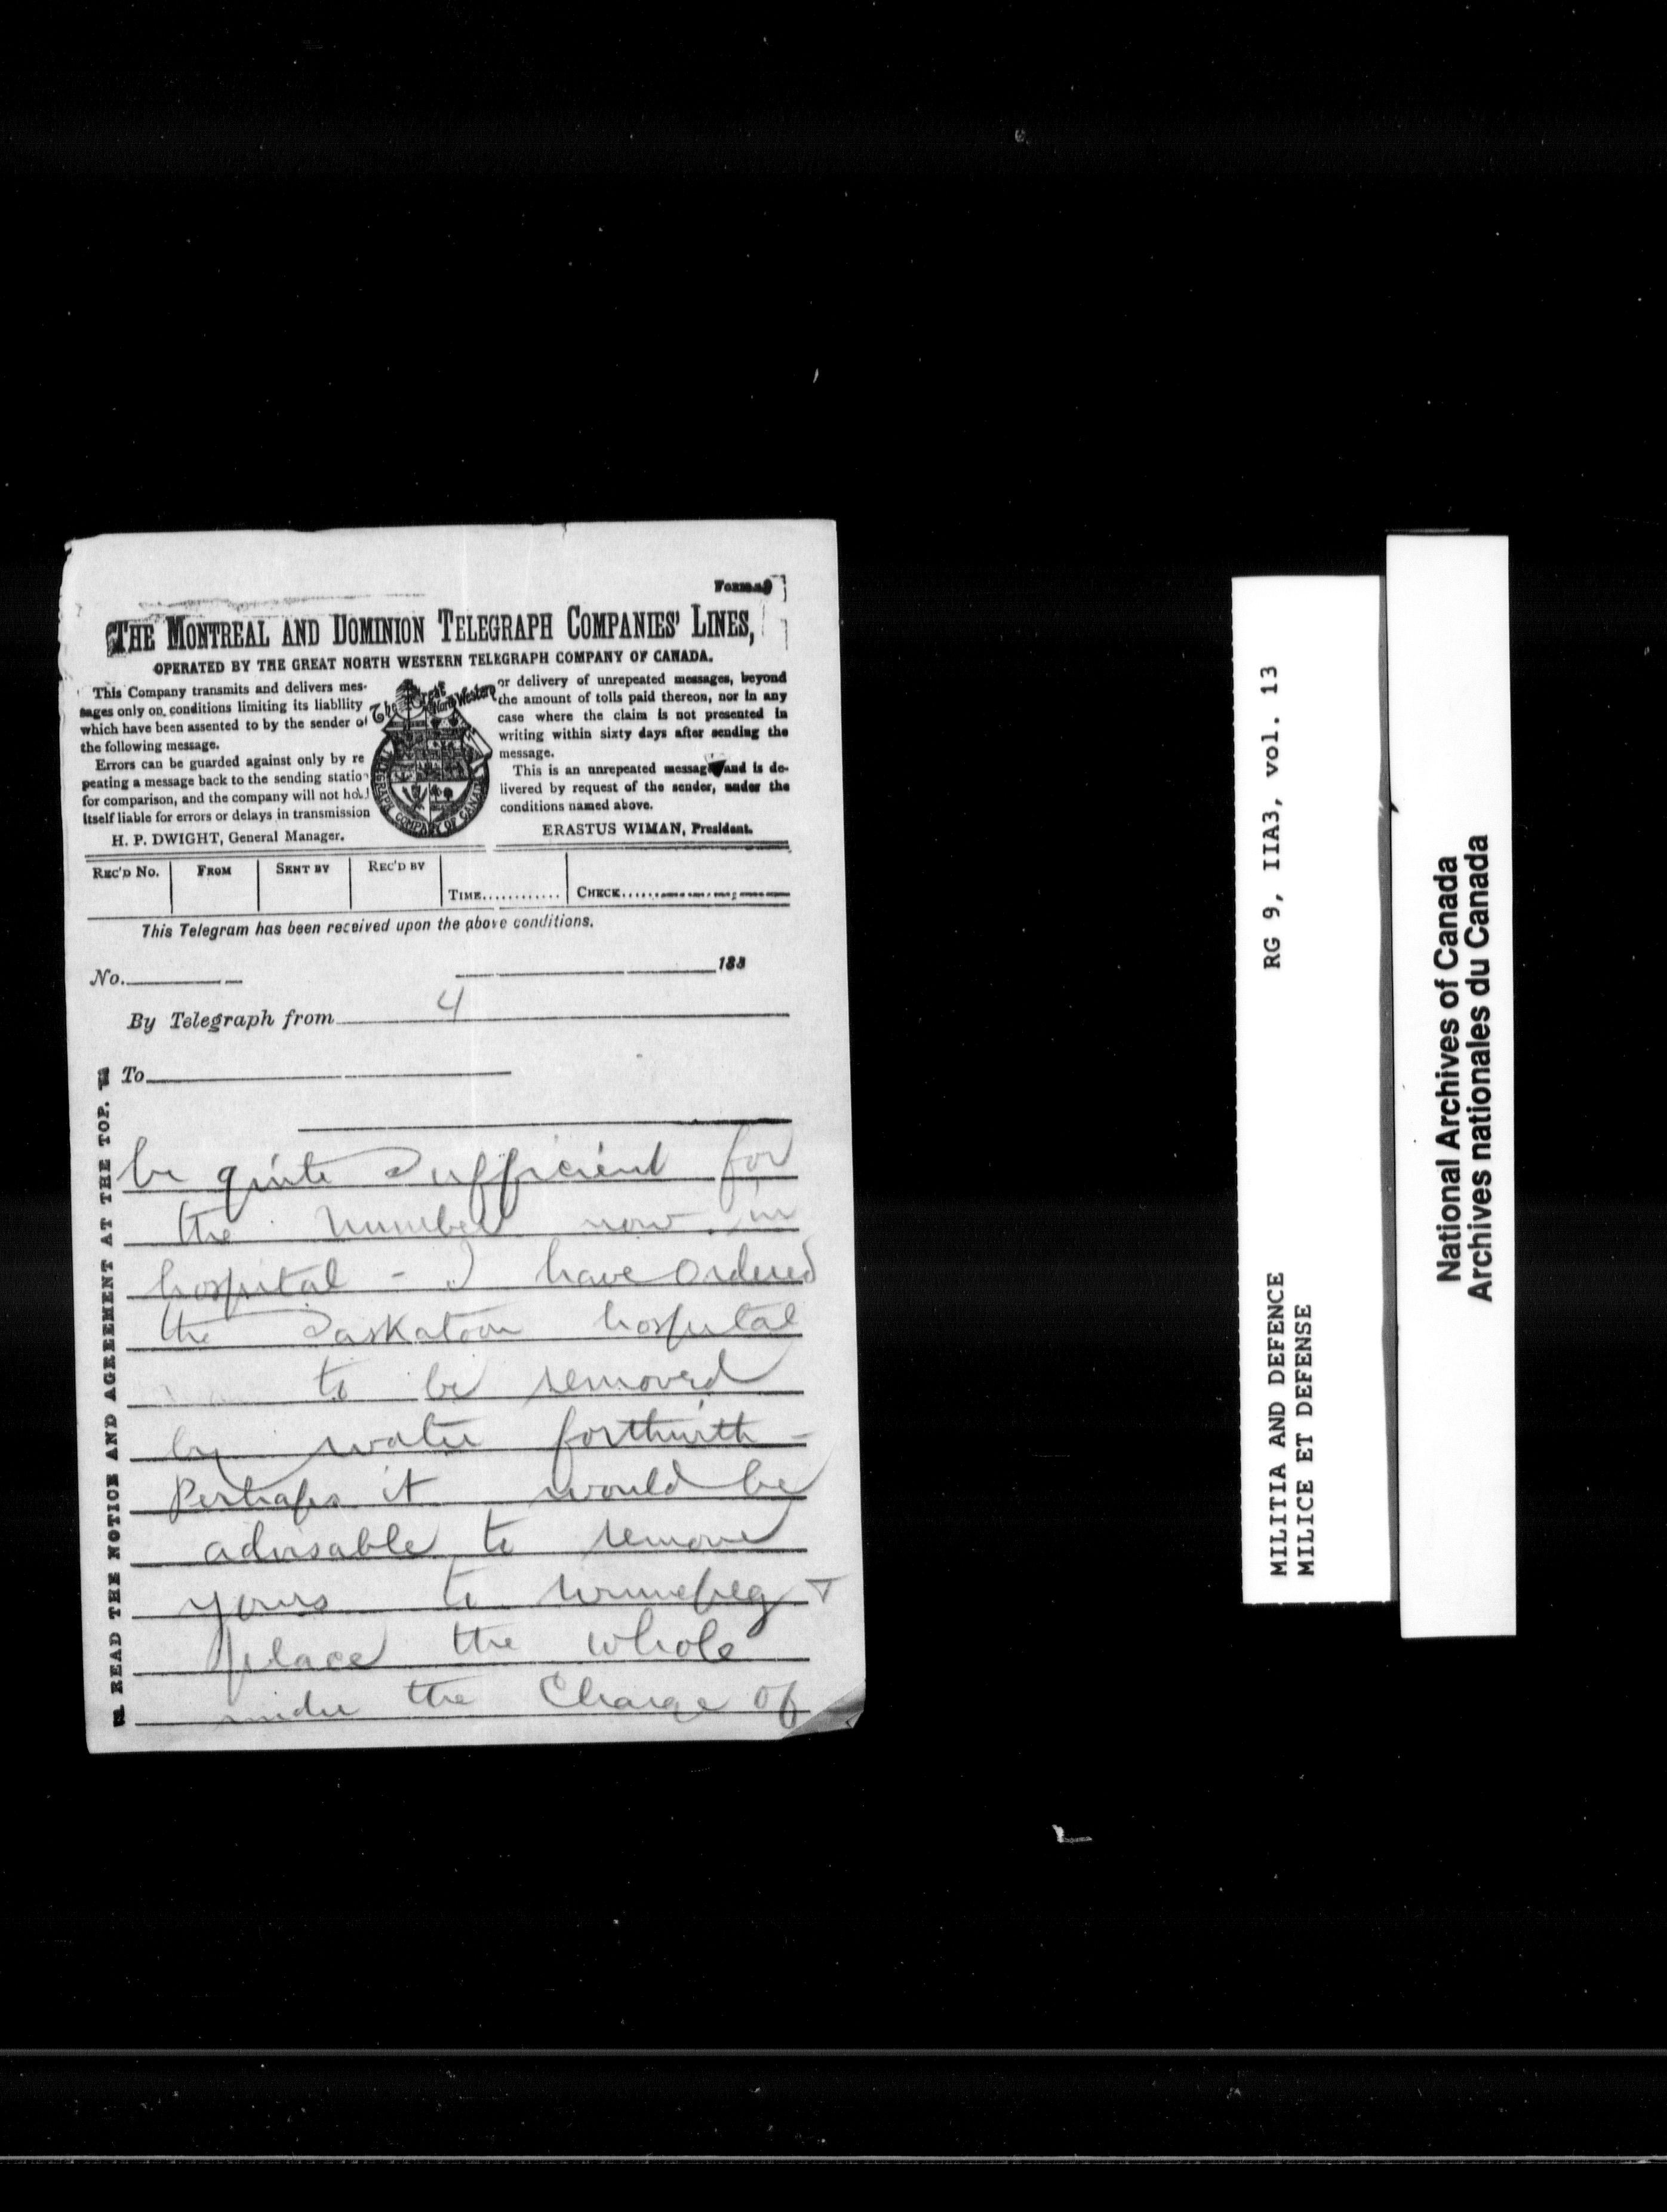 Form 9
THE MONTREAL AND DOMINION TELEGRAPH COMPANIES' LINES,
OPERATED BY THE GREAT NORTH WESTERN TELEGRAPH COMPANY OF CANADA.
This Company transmits and delivers mes-
sages only on conditions limiting its liability
which have been assented to by the sender of
the following message.
Errors can be guarded against only by re
peating a message back to the sending statio
for comparison, and the company will not hol
itself liable for errors or delays in transmission
H. P. DWIGHT, General Manager.
The Great North Western
TELEGRAPH COMPANY OF CANADA
or delivery of unrepeated messages, beyond
the amount of tolls paid thereon, nor in any
case where the claim is not presented in
writing within sixty days after sending the
message.
This is an unrepeated message and is de-
livered by request of the sender, under the
conditions named above.
ERASTUS WIMAN, President.
REC'D No. FROM SENT BY REC'D BY TIME............ CHECK............
This Telegram has been received upon the above conditions.
No. 188
By Telegraph from 4
To
READ THE NOTICE AND AGREEMENT AT THE TOP.
be quite sufficient for
the number now in
hospital - I have ordered
the Saskatoon hospital
to be removed
by water forthwith -
Perhaps it would be
advisable to remove
yours to winnepeg &
place the whole
under the Charge of
MILITIA AND DEFENCE RG 9, IIA3, vol. 13
MILICE ET DEFENSE
National Archives of Canada
Archives nationales du Canada